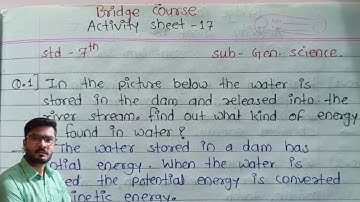 Bridge Course
Activity sheet - 17
std - 7th sub - Gen. science.
Q.1] In the picture below the water is
stored in the dam and released into the
river stream. find out what kind of energy
found in water?
The water stored in a dam has
energy. When the water is
the potential energy is converted
kinetic energy.